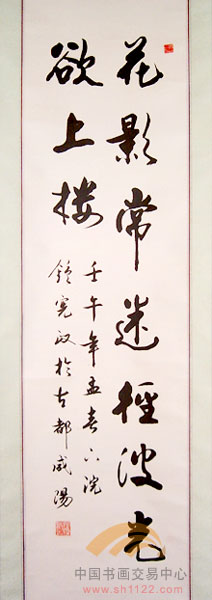 花影常迷徑波光
欲上樓
壬午年孟春浣
於古都咸陽
中国书画交易中心
www.sh1122.com